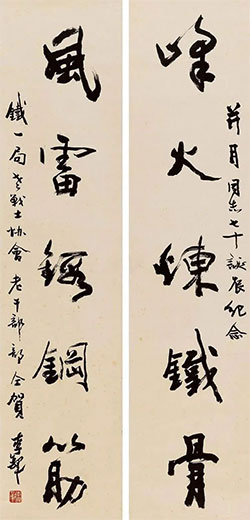 峰火煉鐵骨
月同志七十誕辰紀念
風雷鍛鋼筋
鐵一局老戰士协會 老干部部 仝賀 李